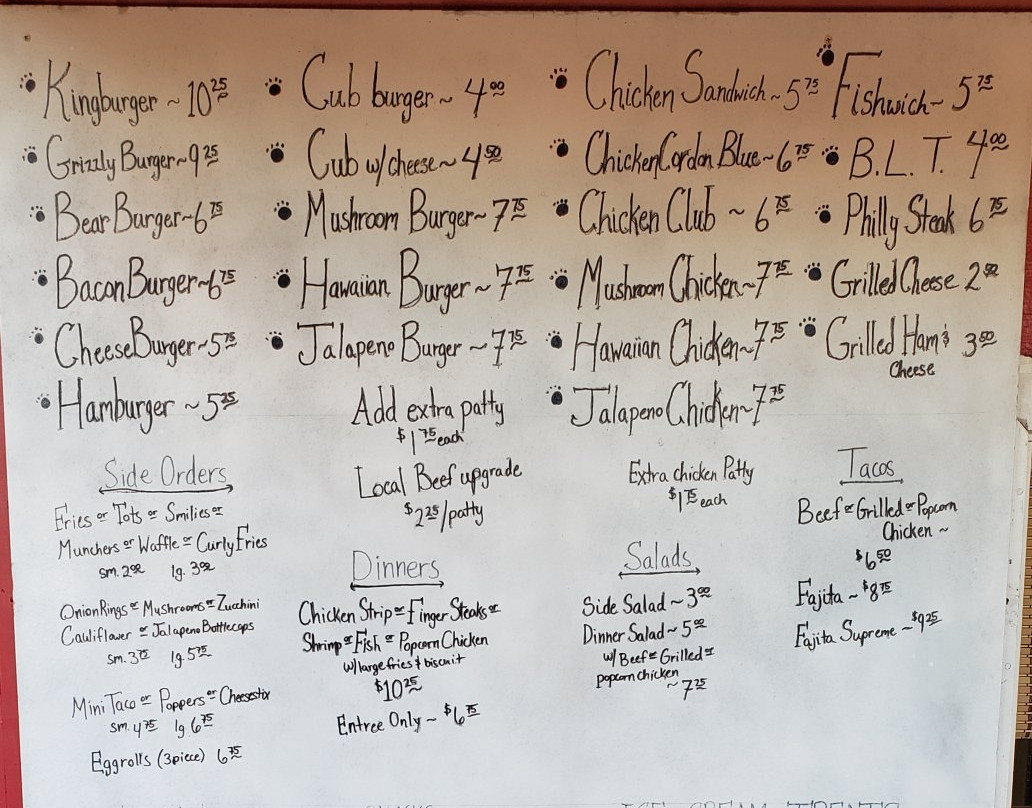 Kingburger ~ 10 25
Grizzly Burger ~ 9 25
Bear Burger ~ 6 75
Bacon Burger ~ 6 75
Cheese Burger ~ 5 75
Hamburger ~ 5 25
Cub burger ~ 4 00
Cub w/ cheese ~ 4 50
Mushroom Burger ~ 7 75
Hawaiian Burger ~ 7 75
Jalapeno Burger ~ 7 75
Add extra patty
$1 75 each
Local Beef upgrade
$2 25/patty
Chicken Sandwich ~ 5 75
Chicken Cordon Blue ~ 6 75
Chicken Club ~ 6 75
Mushroom Chicken ~ 7 75
Hawaiian Chicken ~ 7 75
Jalapeno Chicken ~ 7 75
Extra chicken Patty
$1 75 each
Fishwich ~ 5 75
B.L.T. 4 00
Philly Steak 6 75
Grilled Cheese 2 50
Grilled Ham & 3 50
Cheese
Side Orders
Fries or Tots or Smilies or
Munchers or Waffle or Curly Fries
sm. 2 00 lg. 3 00
Onion Rings or Mushrooms or Zucchini
Cauliflower or Jalapeno Bottlecaps
sm. 3 75 lg. 5 75
Mini Taco or Poppers or Cheesestix
sm. 4 75 lg 6 75
Eggrolls (3 piece) 6 75
Dinners
Chicken Strip or Finger Steaks or
Shrimp or Fish or Popcorn Chicken
w/ large fries & biscuit
$10 25
Entree Only ~ $6 75
Salads
Side Salad ~ 3 00
Dinner Salad ~ 5 00
w/ Beef or Grilled or
popcorn chicken
~ 7 25
Tacos
Beef or Grilled or Popcorn
Chicken ~
$6 50
Fajita ~ $8 75
Fajita Supreme ~ $9 25